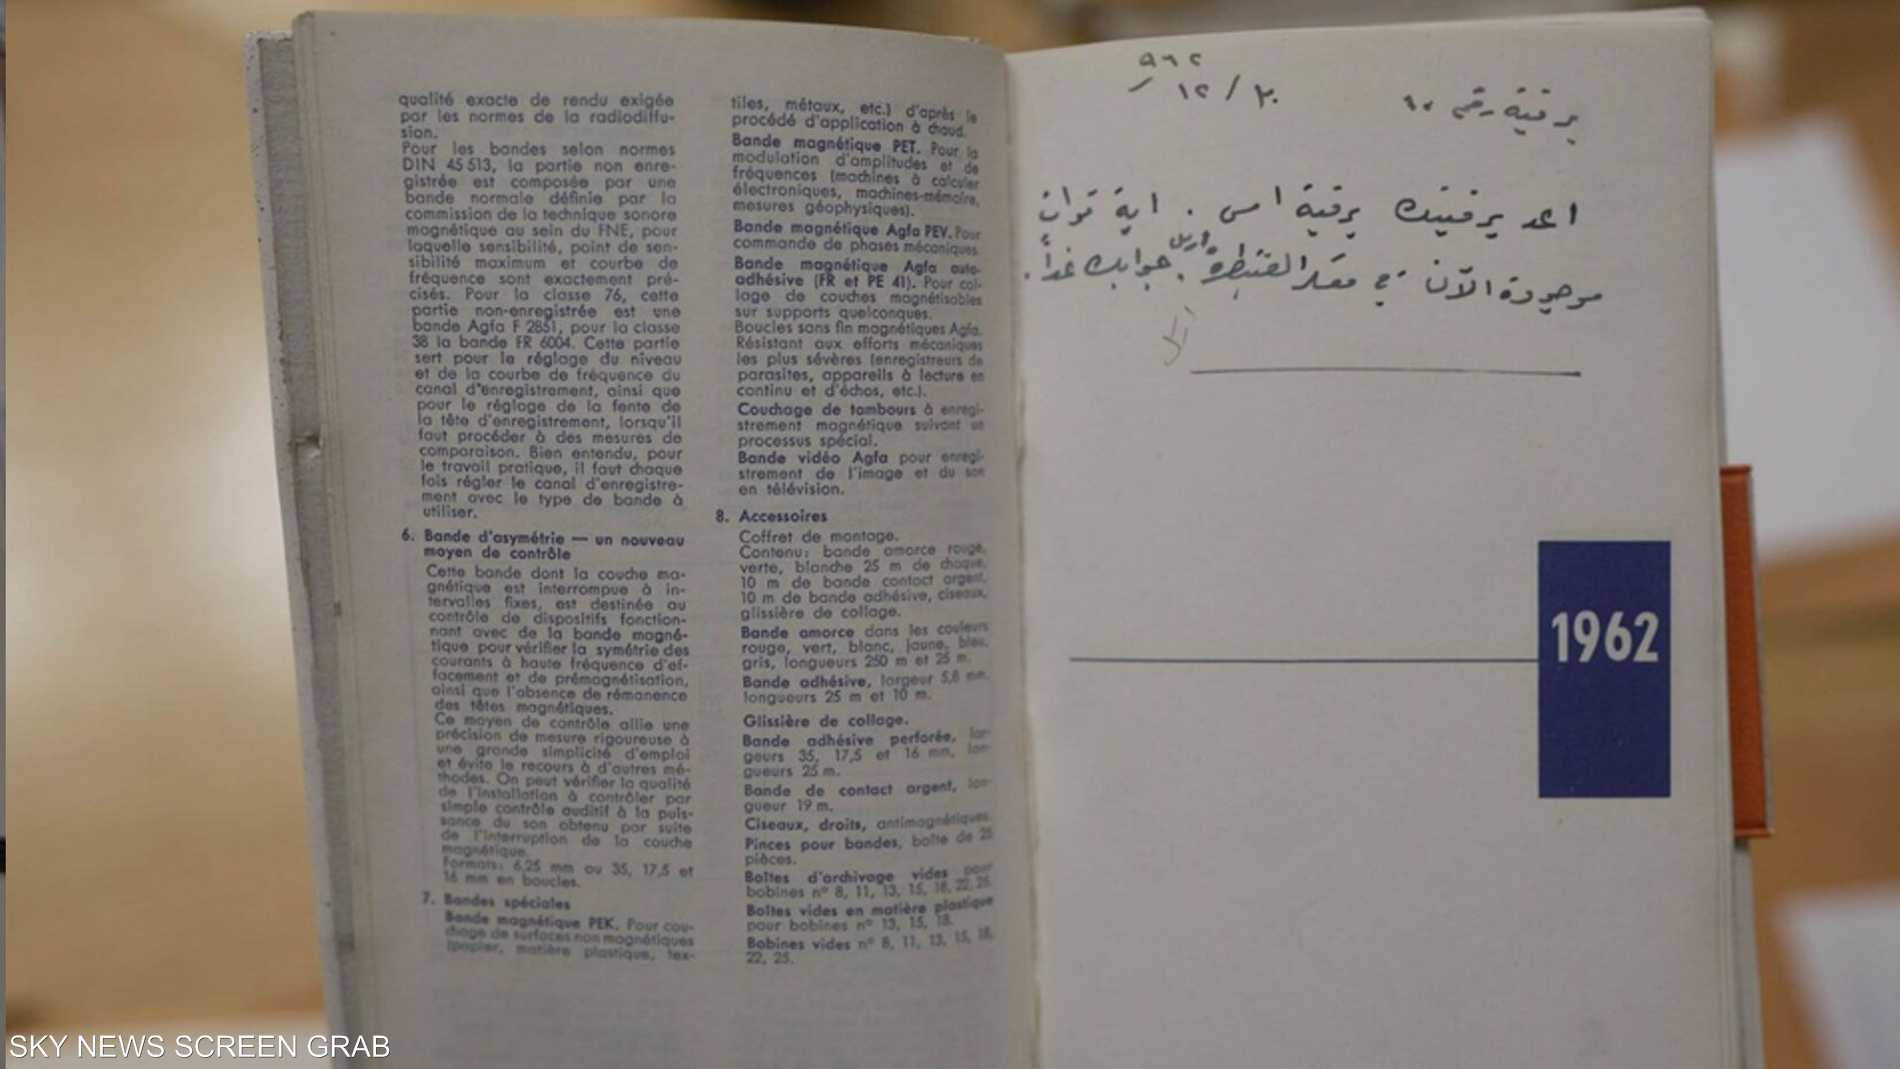 qualité exacte de rendu exigée
par les normes de la radiodiffu-
sion.
Pour les bandes selon normes
DIN 45 513, la partie non enre-
gistrée est composée par une
bande normale définie par la
commission de la technique sonore
magnétique au sein du FNE, pour
laquelle sensibilité, point de sen-
sibilité maximum et courbe de
fréquence sont exactement pré-
cisés. Pour la classe 76, cette
partie non-enregistrée est une
bande Agfa F 2851, pour la classe
38 la bande FR 6004. Cette partie
sert pour le réglage du niveau
et de la courbe de fréquence du
canal d'enregistrement, ainsi que
pour le réglage de la fente de
la tête d'enregistrement, lorsqu'il
faut procéder à des mesures de
comparaison. Bien entendu, pour
le travail pratique, il faut chaque
fois régler le canal d'enregistre-
ment avec le type de bande à
utiliser.
6. Bande d'asymétrie — un nouveau
moyen de contrôle
Cette bande dont la couche ma-
gnétique est interrompue à in-
tervalles fixes, est destinée au
contrôle de dispositifs fonction-
nant avec de la bande magné-
tique pour vérifier la symétrie des
courants à haute fréquence d'ef-
facement et de prémagnétisation,
ainsi que l'absence de rémanence
des têtes magnétiques.
Ce moyen de contrôle allie une
précision de mesure rigoureuse à
une grande simplicité d'emploi
et évite le recours à d'autres mé-
thodes. On peut vérifier la qualité
de l'installation à contrôler par
simple contrôle auditif à la puis-
sance du son obtenu par suite
de l'interruption de la couche
magnétique.
Formats: 6,25 mm ou 35, 17,5 et
16 mm en boucles.
7. Bandes spéciales
Bande magnétique PEK. Pour cou-
chage de surfaces non magnétiques
(papier, matière plastique, tex-
tiles, métaux, etc.) d'après le
procédé d'application à chaud.
Bande magnétique PET. Pour la
modulation d'amplitudes et de
fréquences (machines à calculer
électroniques, machines-mémoire,
mesures géophysiques).
Bande magnétique Agfa PEV. Pour
commande de phases mécaniques.
Bande magnétique Agfa auto-
adhésive (FR et PE 41). Pour col-
lage de couches magnétisables
sur supports quelconques.
Boucles sans fin magnétiques Agfa.
Résistant aux efforts mécaniques
les plus sévères (enregistreurs de
parasites, appareils à lecture en
continu et d'échos, etc.).
Couchage de tambours à enregi-
strement magnétique suivant un
processus spécial.
Bande vidéo Agfa pour enregi-
strement de l'image et du son
en télévision.
8. Accessoires
Coffret de montage.
Contenu: bande amorce rouge,
verte, blanche 25 m de chaque,
10 m de bande contact argent,
10 m de bande adhésive, ciseaux,
glissière de collage.
Bande amorce dans les couleurs
rouge, vert, blanc, jaune, bleu,
gris, longueurs 250 m et 25 m.
Bande adhésive, largeur 5,8 mm,
longueurs 25 m et 10 m.
Glissière de collage.
Bande adhésive perforée, lar-
geurs 35, 17,5 et 16 mm, lon-
gueurs 25 m.
Bande de contact argent, lon-
gueur 19 m.
Ciseaux, droits, antimagnétiques.
Pinces pour bandes, boîte de 25
pièces.
Boîtes d'archivage vides pour
bobines n° 8, 11, 13, 15, 18, 22, 25.
Boîtes vides en matière plastique
pour bobines n° 13, 15, 18.
Bobines vides n° 8, 11, 13, 15, 18,
22, 25.
٩٦٢
برقية رقم ٢٠ / ١٢
اعد برقيتك برقية امس . اية قوات
موجودة الآن في معسكر القنيطرة . جوابك غداً .
1962
SKY NEWS SCREEN GRAB